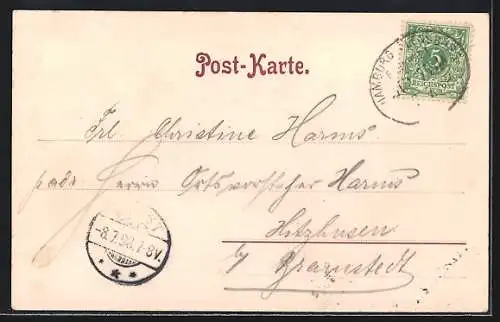 Post-Karte.
HAMBURG
5
REICHSPOST
Frl Christine Harms
padr Herrn Ortsvorsteher Harms
Hitzhusen
by Bramstedt
-8.7.98.7-8V.
* * *